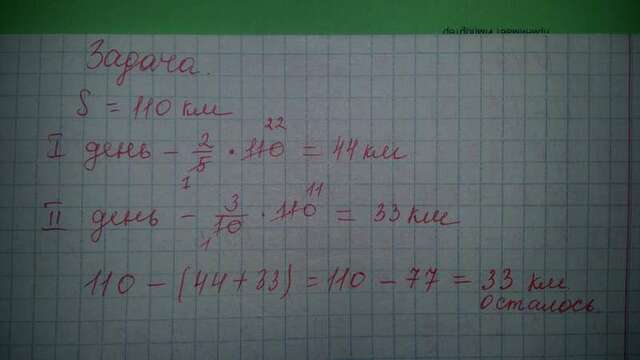 Задача.
S = 110 км
I день - 2/5 · 110 = 44 км
22
1
II день - 3/10 · 110 = 33 км
11
1
110 - (44+33) = 110 - 77 = 33 км
осталось
принимает импортер